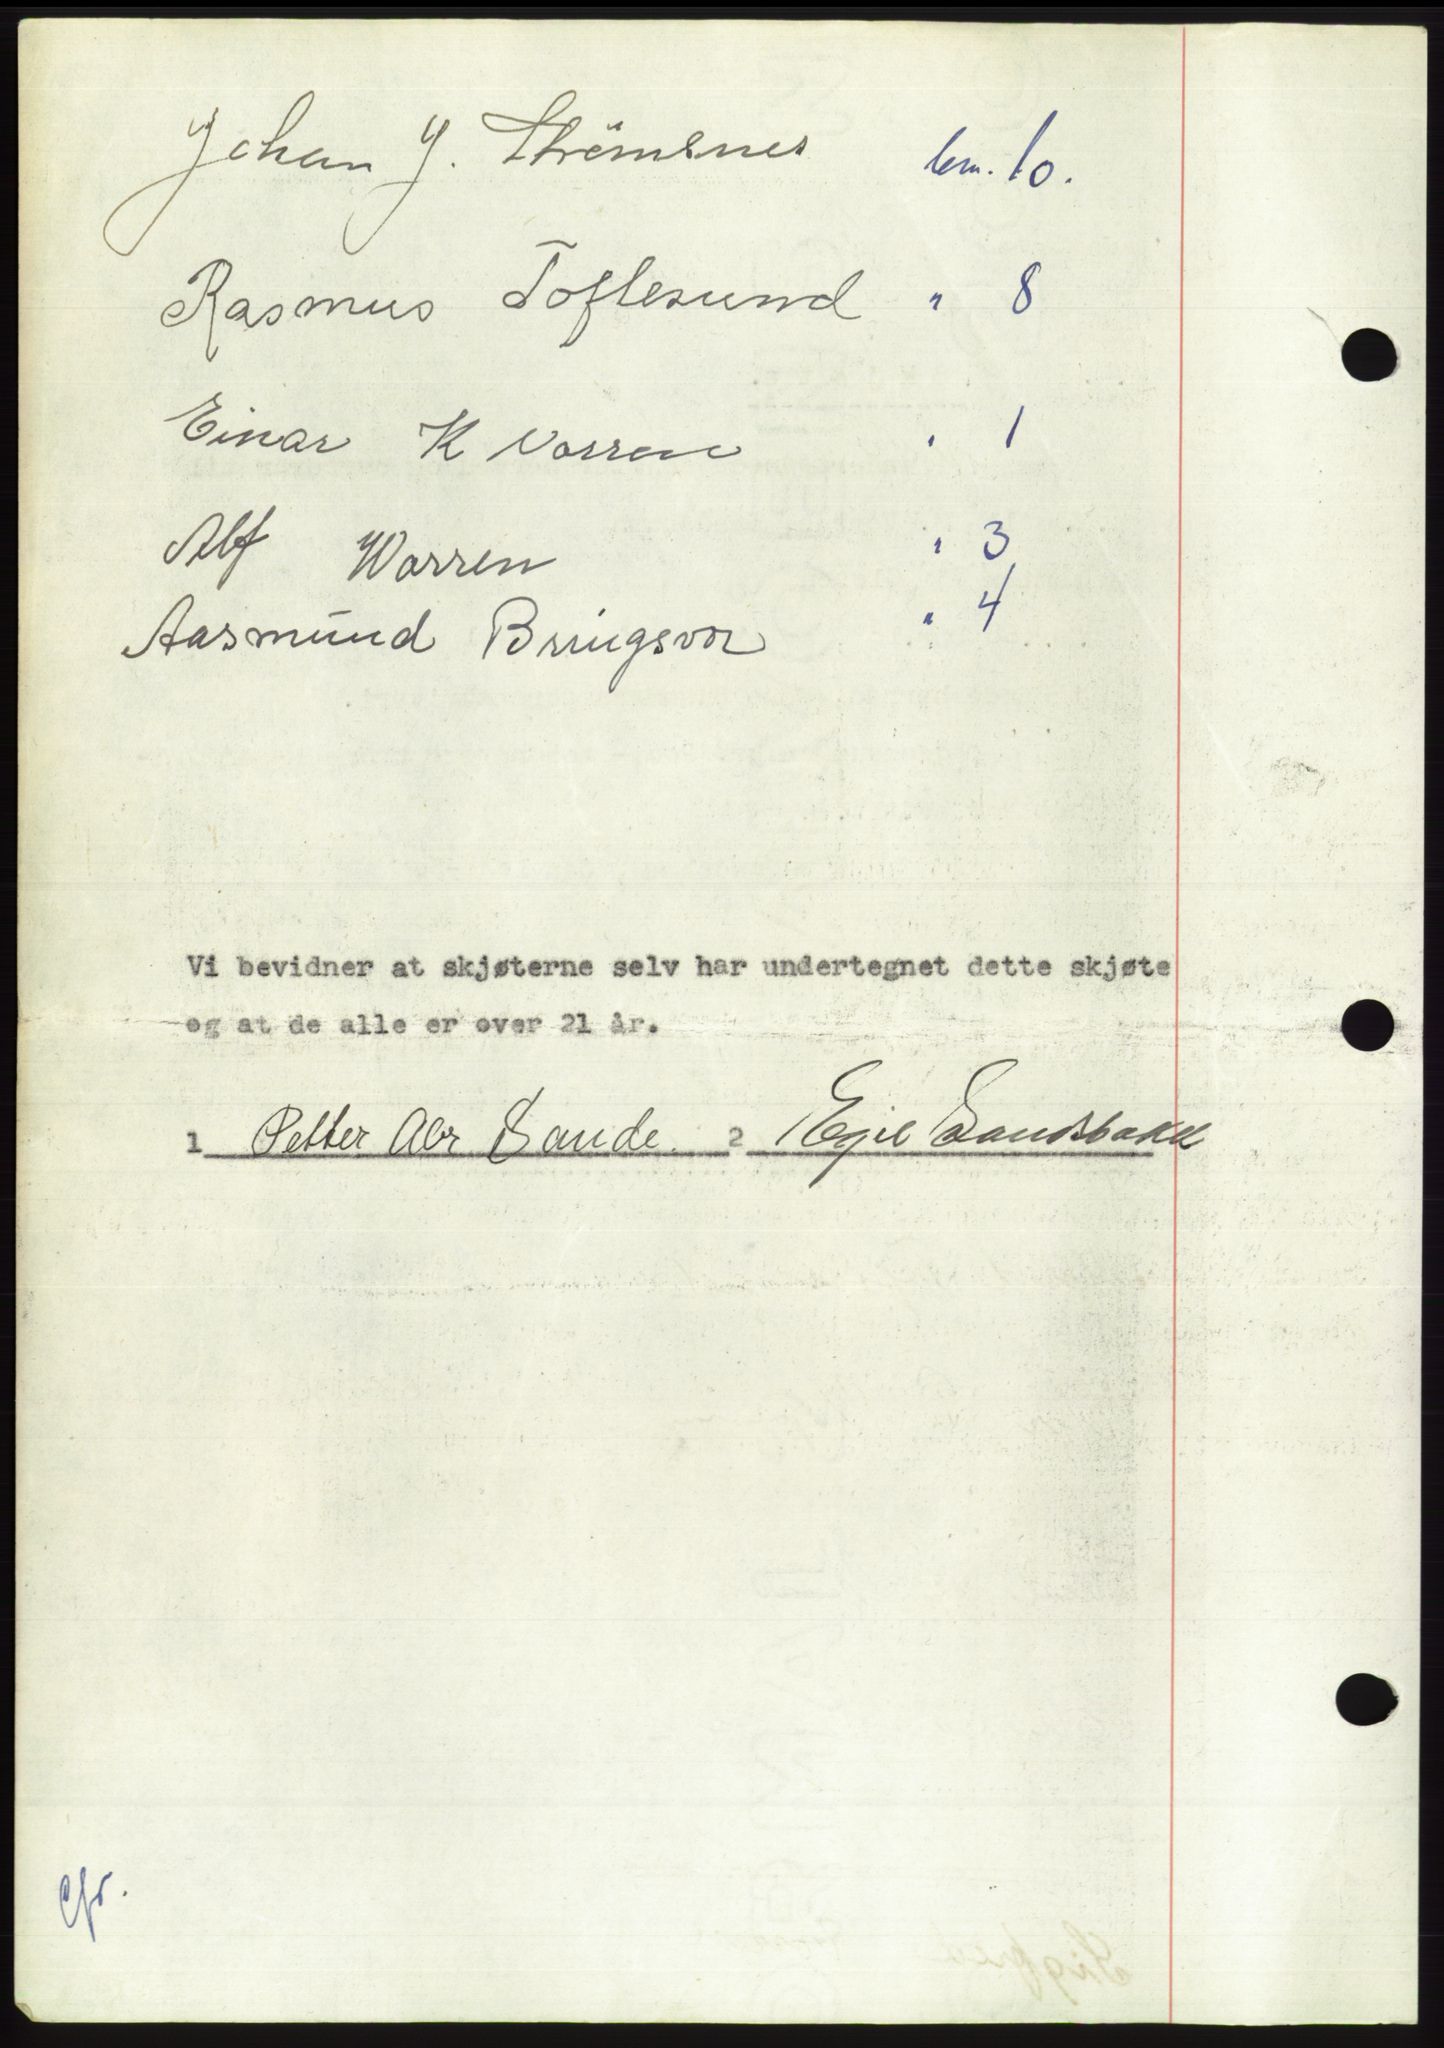 Johan J. Strömsnes bem. 10.
Rasmus Toflesund " 8
Einar K Vorren " 1
Alf Worren " 3
Aasmund Bringsvor " 4
Vi bevidner at skjøterne selv har undertegnet dette skjøte
og at de alle er over 21 år.
1 Petter Abr Sande. 2 Egil Sandsbakk